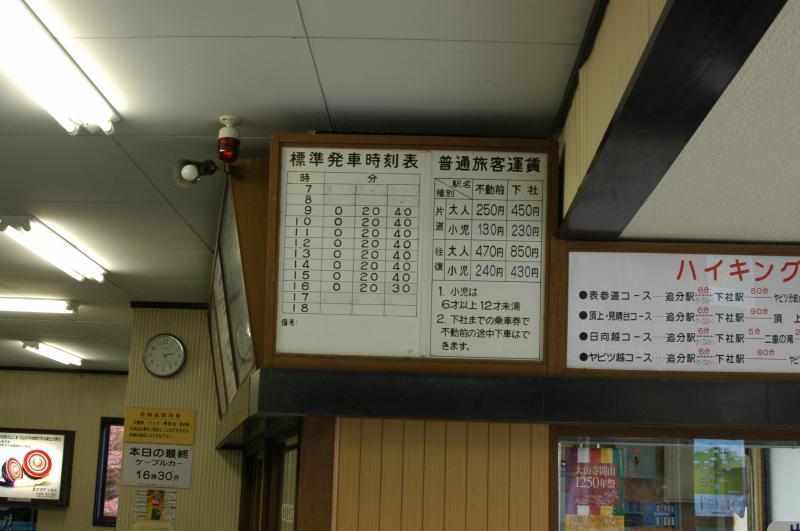 標準発車時刻表
時 分
7
8
9 0 20 40
10 0 20 40
11 0 20 40
12 0 20 40
13 0 20 40
14 0 20 40
15 0 20 40
16 0 20 30
17
18
備考:
普通旅客運賃
駅名 種別 不動前 下社
片道 大人 250円 450円
小児 130円 230円
往復 大人 470円 850円
小児 240円 430円
1. 小児は
6才以上12才未満
2. 下社までの乗車券で
不動前の途中下車はで
きます。
ハイキング
●表参道コース…追分駅 6分 ケーブルカー 下社駅 80分 ヤビツ分岐
●頂上・見晴台コース…追分駅 6分 ケーブルカー 下社駅 90分 頂上
●日向越コース…追分駅 6分 ケーブルカー 下社駅 5分 二重の滝
●ヤビツ越コース…追分駅 6分 ケーブルカー 下社駅 80分 ヤビ
本日の最終
ケーブルカー
16時30分
大山寺開山
1250年祭